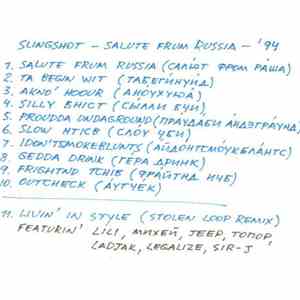 SLINGSHOT – SALUTE FRUM RUSSIA – '94
1. SALUTE FRUM RUSSIA (САЛЮТ ФРОМ РАША)
2. TA BEGIN WIT (ТАБЕГИНУИД)
3. AKNO' HOOUR (АНОУХУЮА)
4. SILLY BHICT (СЫЛЛИ БЧИ)
5. PROUDDA UNDAGROUND (ПРАУДАБИ АНДЭГРАУНД)
6. SLOW HTICB (СЛОУ ЧБИ)
7. IDON'TSMOKEBLUNTS (АЙДОНТСМОУКБЛАНТС)
8. GEDDA DRINK (ГЕРА ДРИНК)
9. FRIGHTND TCHIB (ФРАЙТНД ИЧБ)
10. OUTCHECK (АУТЧЕК)
11. LIVIN' IN STYLE (STOLEN LOOP REMIX)
FEATURIN' LILI, МИХЕЙ, JEEP, ТОПОР,
LADJAK, LEGALIZE, SIR-J